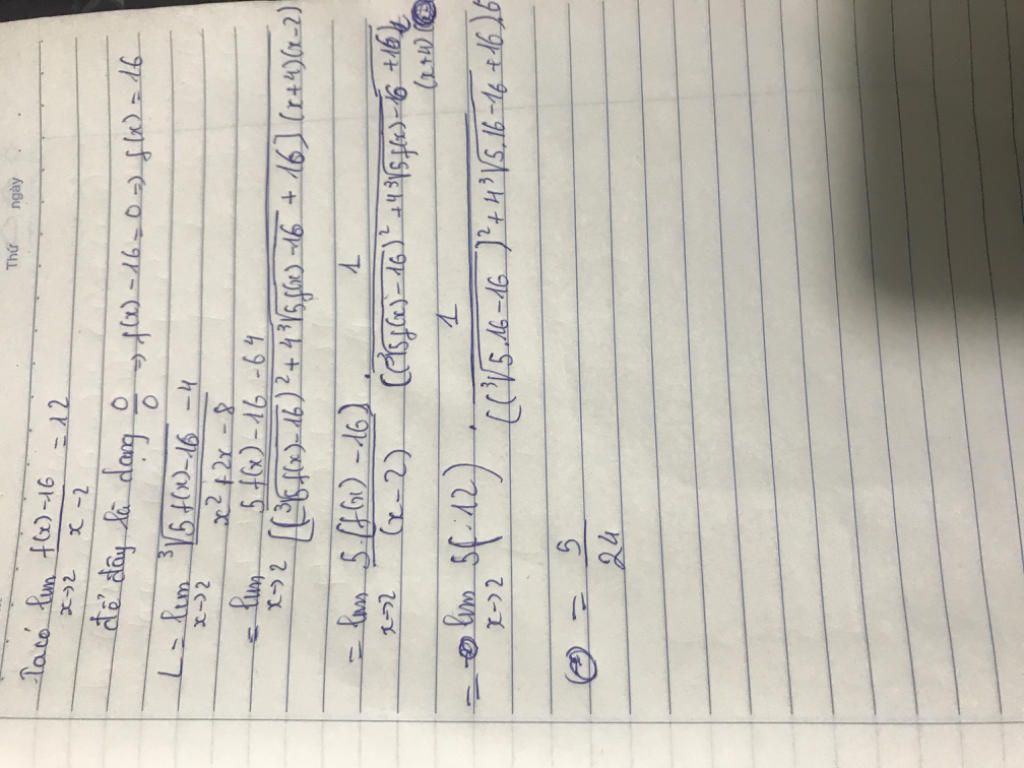 Thứ ngày
Ta có lim x→2 (f(x)-16)/(x-2) = 12
để đây là dạng 0/0 => f(x)-16=0 => f(x)=16
L = lim x→2 (∛(5f(x)-16) -4)/(x²+2x-8)
= lim x→2 (5f(x)-16-64)/([(∛(5f(x)-16))²+4∛(5f(x)-16)+16](x+4)(x-2))
= lim x→2 5(f(x)-16)/(x-2) . 1/(((∛(5f(x)-16)²+4∛(5f(x)-16)+16)(x+4))
= lim x→2 5(.12) . 1/(((∛(5.16-16))²+4∛(5.16-16)+16).6)
= 5/24